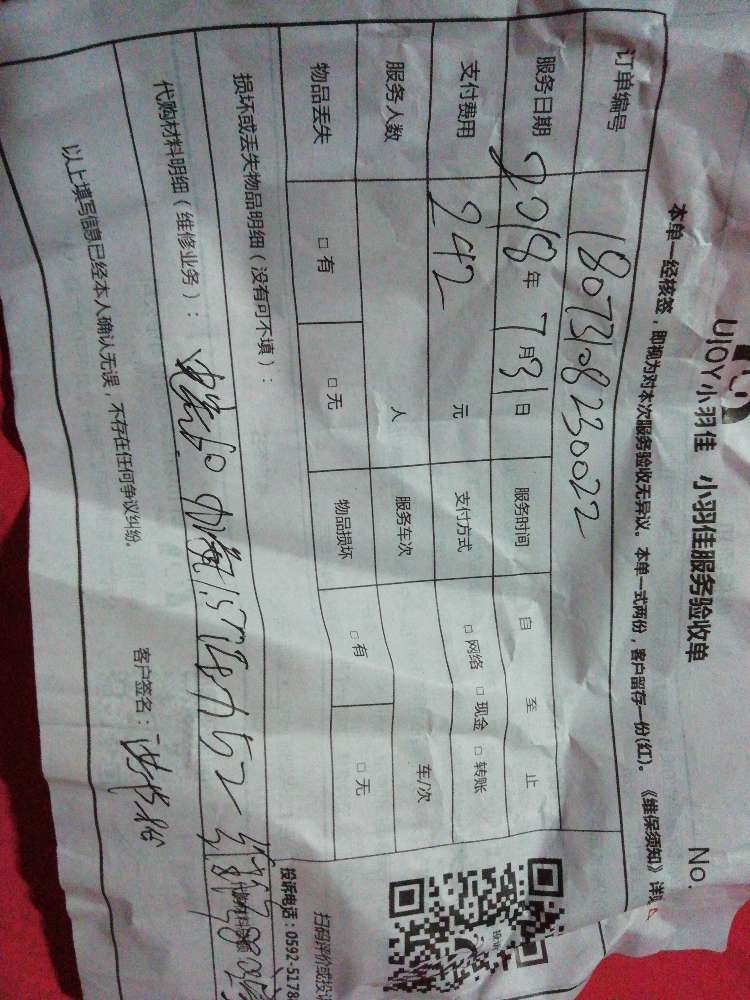 UJOY小羽佳 小羽佳服务验收单
No.
本单一经核签，即视为对本次服务验收无异议。本单一式两份，客户留存一份(红)。《维保须知》详
订单编号 18073108230022
服务日期 2018年7月31日 服务时间 自 至 止
支付费用 242 元 支付方式 □ 网络 □ 现金 □ 转账
服务人数 人 服务车次 车/次
物品丢失 □ 有 □ 无 物品损坏 □ 有 □ 无
损坏或丢失物品明细（没有可不填）：
代购材料明细（维修业务）：
以上填写信息已经本人确认无误，不存在任何争议纠纷。
客户签名：
扫码评价或投诉
投诉电话：0592-5178